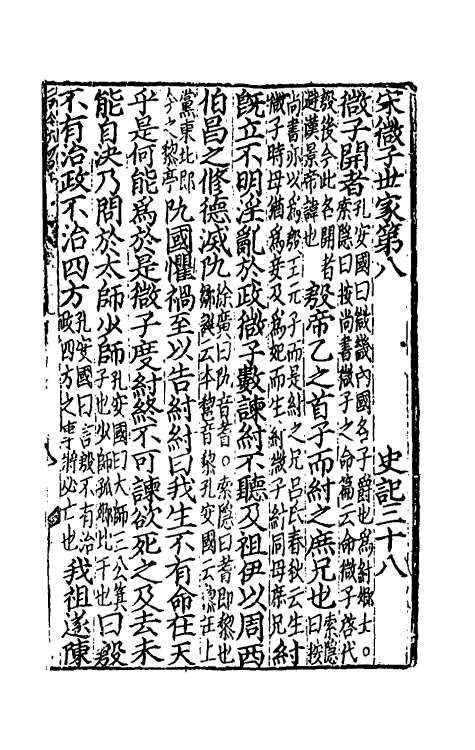 宋微子世家第八　史記三十八
微子開者孔安國曰微畿內國名子爵也爲紂卿士。索隱曰按尚書微子之命篇云命微子啓代殷後今此名開者避漢景帝諱也殷帝乙之首子而紂之庶兄也索隱曰按
尚書亦以爲殷王元子而是紂之兄呂氏春秋云生微子時母猶爲妾及爲妃而生紂故微子紂同母庶兄紂
既立不明淫亂於政微子數諫紂不聽及祖伊以周西
伯昌之修德滅阢徐廣曰阢音耆。索隱曰耆即黎也鄒誕云本黎音黎孔安國云黎在上黨東北即今之黎亭阢國懼禍至以告紂紂曰我生不有命在天
乎是何能爲於是微子度紂終不可諫欲死之及去未
能自決乃問於太師少師孔安國曰大師三公箕子也少師孤卿比干也曰殷
不有治政不治四方孔安國曰言殷不有治政四方之事將必亡也我祖遂陳